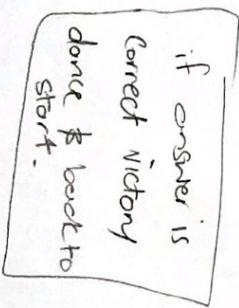 if answer is
Correct Victory
dance & back to
start.